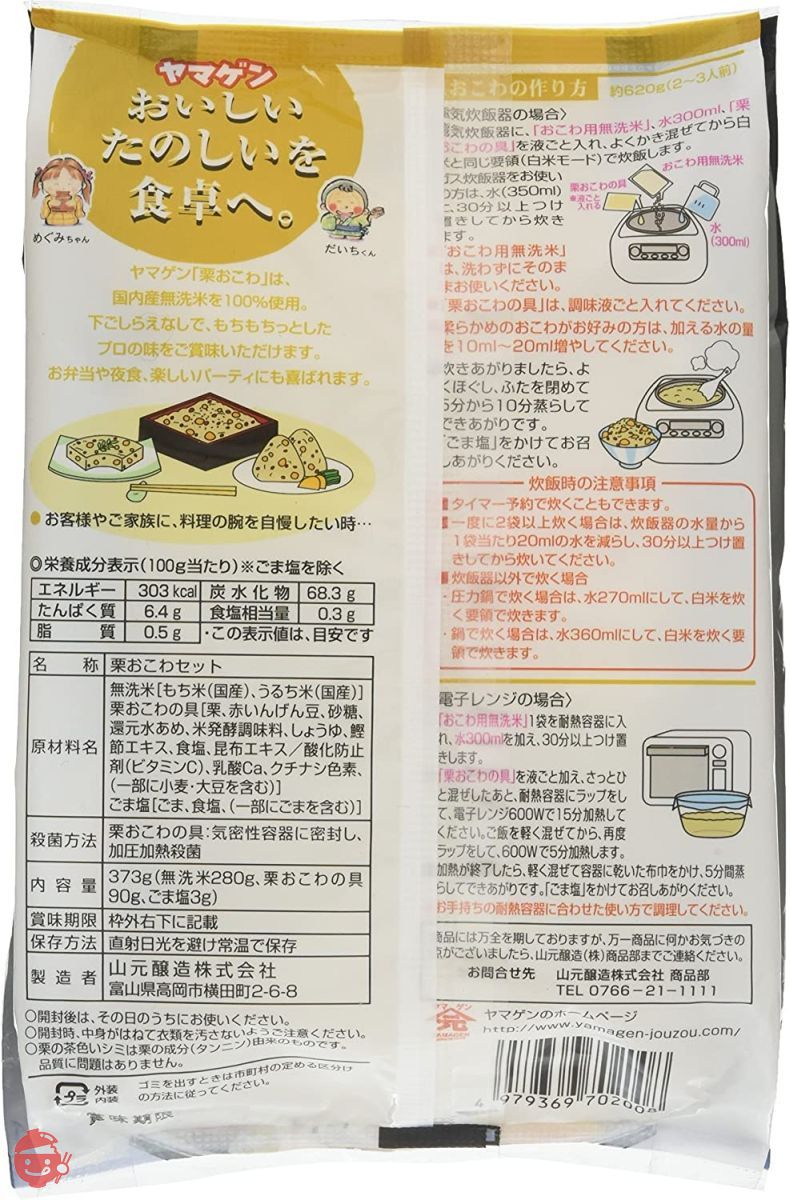 ヤマゲン
おいしい
たのしいを
食卓へ。
めぐみちゃん
だいちくん
ヤマゲン「栗おこわ」は、
国内産無洗米を100%使用。
下ごしらえなしで、もちもちっとした
プロの味をご賞味いただけます。
お弁当や夜食、楽しいパーティにも喜ばれます。
●お客様やご家族に、料理の腕を自慢したい時…
◎栄養成分表示(100g当たり)※ごま塩を除く
エネルギー 303kcal 炭水化物 68.3g
たんぱく質 6.4g 食塩相当量 0.3g
脂質 0.5g ・この表示値は、目安です
名称 栗おこわセット
原材料名 無洗米[もち米(国産)、うるち米(国産)]
栗おこわの具[栗、赤いんげん豆、砂糖、
還元水あめ、米発酵調味料、しょうゆ、鰹
節エキス、食塩、昆布エキス/酸化防止
剤(ビタミンC)、乳酸Ca、クチナシ色素、
(一部に小麦・大豆を含む)]
ごま塩[ごま、食塩、(一部にごまを含む)]
殺菌方法 栗おこわの具:気密性容器に密封し、
加圧加熱殺菌
内容量 373g(無洗米280g、栗おこわの具
90g、ごま塩3g)
賞味期限 枠外右下に記載
保存方法 直射日光を避け常温で保存
製造者 山元醸造株式会社
富山県高岡市横田町2-6-8
○開封後は、その日のうちにお使いください。
○開封時、中身がはねて衣類を汚さないようご注意ください。
○栗の茶色いシミは栗の成分(タンニン)由来のものです。
品質に問題はありません。
プラ
外装
内装
ゴミを出すときは市町村の定める区分け
の方法に従ってください。
賞味期限
おこわの作り方 約620g(2〜3人前)
電気炊飯器の場合〉
電気炊飯器に、「おこわ用無洗米」、水300ml、「栗
おこわの具」を液ごと入れ、よくかき混ぜてから白
米と同じ要領(白米モード)で炊飯します。
ガス炊飯器をお使い
の方は、水(350ml)
に、30分以上つけ
置きしてから炊き
ます。
おこわ用無洗米
栗おこわの具
※液ごと
入れる
水
(300ml)
「おこわ用無洗米」
は、洗わずにそのま
まお使いください。
「栗おこわの具」は、調味液ごと入れてください。
柔らかめのおこわがお好みの方は、加える水の量
を10ml〜20ml増やしてください。
炊きあがりましたら、よ
くほぐし、ふたを閉めて
5分から10分蒸らして
できあがりです。
「ごま塩」をかけてお召
しあがりください。
炊飯時の注意事項
■タイマー予約で炊くこともできます。
■一度に2袋以上炊く場合は、炊飯器の水量から
1袋当たり20mlの水を減らし、30分以上つけ置
きしてから炊いてください。
■炊飯器以外で炊く場合
・圧力鍋で炊く場合は、水270mlにして、白米を炊
く要領で炊きます。
・鍋で炊く場合は、水360mlにして、白米を炊く要
領で炊きます。
電子レンジの場合〉
「おこわ用無洗米」1袋を耐熱容器に入
れ、水300mlを加え、30分以上つけ置
きします。
「栗おこわの具」を液ごと加え、さっとひ
と混ぜしたあと、耐熱容器にラップをし
て、電子レンジ600Wで15分加熱して
ください。ご飯を軽く混ぜてから、再度
ラップをして、600Wで5分加熱します。
加熱が終了したら、軽く混ぜて容器に乾いた布巾をかけ、5分間蒸
らしてできあがりです。「ごま塩」をかけてお召しあがりください。
お手持ちの耐熱容器に合わせた使い方で調理してください。
商品には万全を期しておりますが、万一商品に何かお気づきの
点がございましたら、山元醸造(株)商品部までご連絡ください。
お問合せ先 山元醸造株式会社 商品部
TEL 0766-21-1111
ヤマゲン
元
YAMAGEN
ヤマゲンのホームページ
http://www.yamagen-jouzou.com/
4 979369 702008